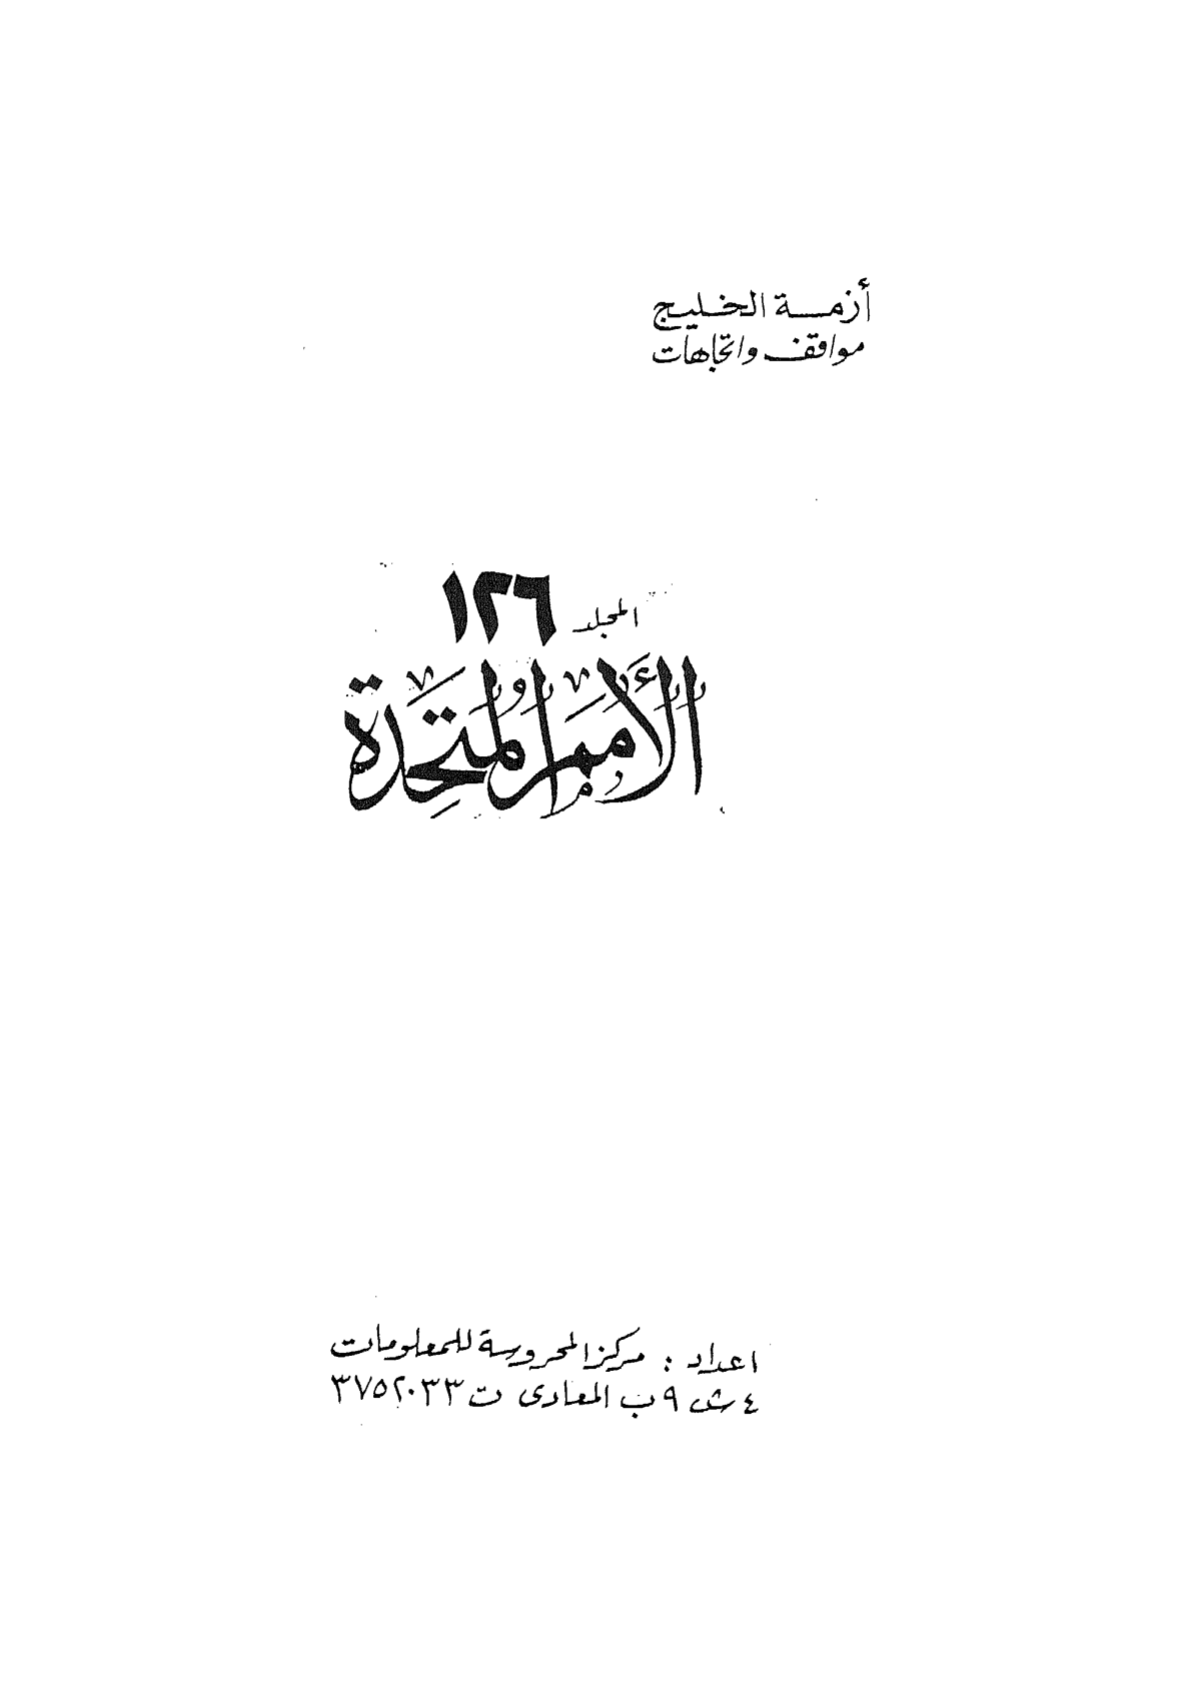 أزمة الخليج
مواقف واتجاهات
المجلد ١٢٦
الأمم المتحدة
اعداد : مركز المحروسة للمعلومات
٤ ش ٩ب المعادى ت ٣٧٥٢٠٣٣